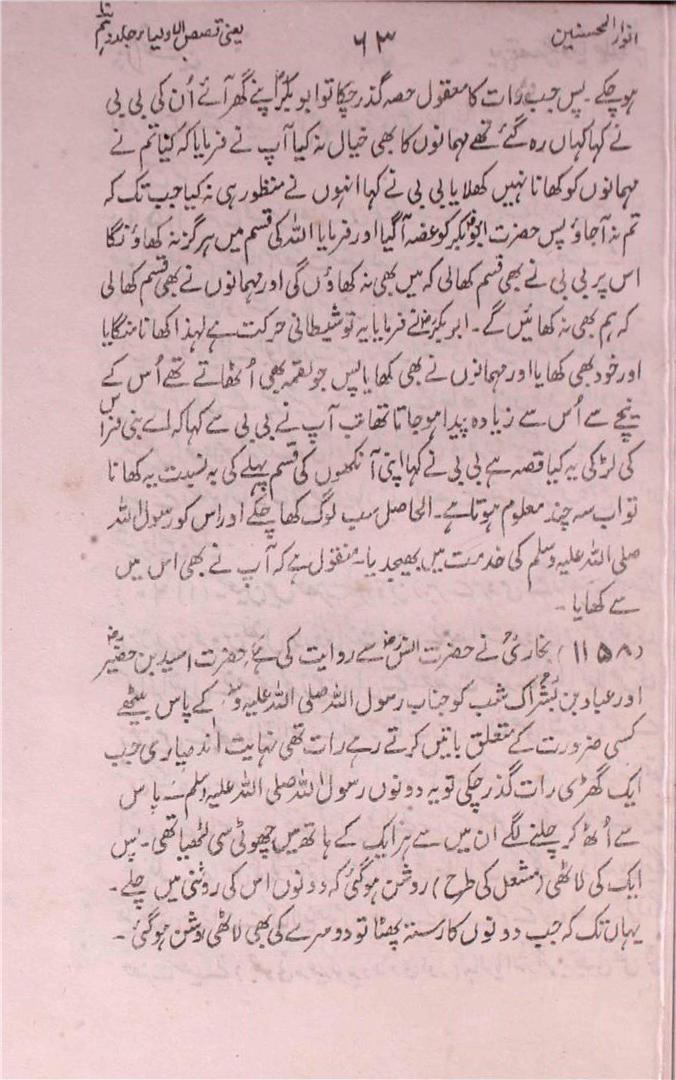 انوار المحسنین ۶۳ یعنی قصص الاولیاء جلد نہم
ہوچکے۔ پس جب رات کا معقول حصہ گذر چکا تو ابوبکرؓ اپنے گھر آئے اُن کی بی بی
نے کہا کہاں رہ گئے تھے مہمانوں کا بھی خیال نہ کیا آپ نے فرمایا کہ کیا تم نے
مہمانوں کو کھانا نہیں کھلایا بی بی نے کہا انہوں نے منظور ہی نہ کیا جب تک کہ
تم نہ آجاؤ پس حضرت ابوبکرؓ کو غصہ آگیا اور فرمایا اللہ کی قسم میں ہرگز نہ کھاؤنگا
اس پر بی بی نے بھی قسم کھالی کہ میں بھی نہ کھاؤں گی اور مہمانوں نے بھی قسم کھالی
کہ ہم بھی نہ کھائیں گے۔ ابوبکرؓ نے فرمایا یہ تو شیطانی حرکت ہے لہذا کھانا منگایا
اور خود بھی کھایا اور مہمانوں نے بھی کھایا پس جو لقمہ بھی اُٹھاتے تھے اُس کے
نیچے سے اُس سے زیادہ پیدا ہوجاتا تھا تب آپ نے بی بی سے کہا کہ اے بنی فراس
کی لڑکی یہ کیا قصہ ہے بی بی نے کہا اپنی آنکھوں کی قسم پہلے کی بہ نسبت یہ کھانا
تو اب سہ چند معلوم ہوتا ہے۔ الحاصل سب لوگ کھا چکے اور اس کو رسول اللہ
صلی اللہ علیہ وسلم کی خدمت میں بھیجدیا۔ منقول ہے کہ آپ نے بھی اس میں
سے کھایا۔
(۱۱۵۸) بخاریؒ نے حضرت انسؓ سے روایت کی ہے حضرت اسید بن حضیرؓ
اور عباد بن بشرؓ اک شب کو جناب رسول اللہ صلی اللہ علیہ وسلم کے پاس بیٹھے
کسی ضرورت کے متعلق باتیں کرتے رہے رات تھی نہایت اندھیاری جب
ایک گھڑی رات گذر چکی تو یہ دونوں رسول اللہ صلی اللہ علیہ وسلم کے پاس
سے اُٹھ کر چلنے لگے ان میں سے ہر ایک کے ہاتھ میں چھوٹی سی لٹھیا تھی۔ پس
ایک کی لاٹھی (مشعل کی طرح) روشن ہوگئی کہ دونوں اس کی روشنی میں چلے۔
یہاں تک کہ جب دونوں کا رستہ پھٹا تو دوسرے کی بھی لاٹھی روشن ہوگئی۔